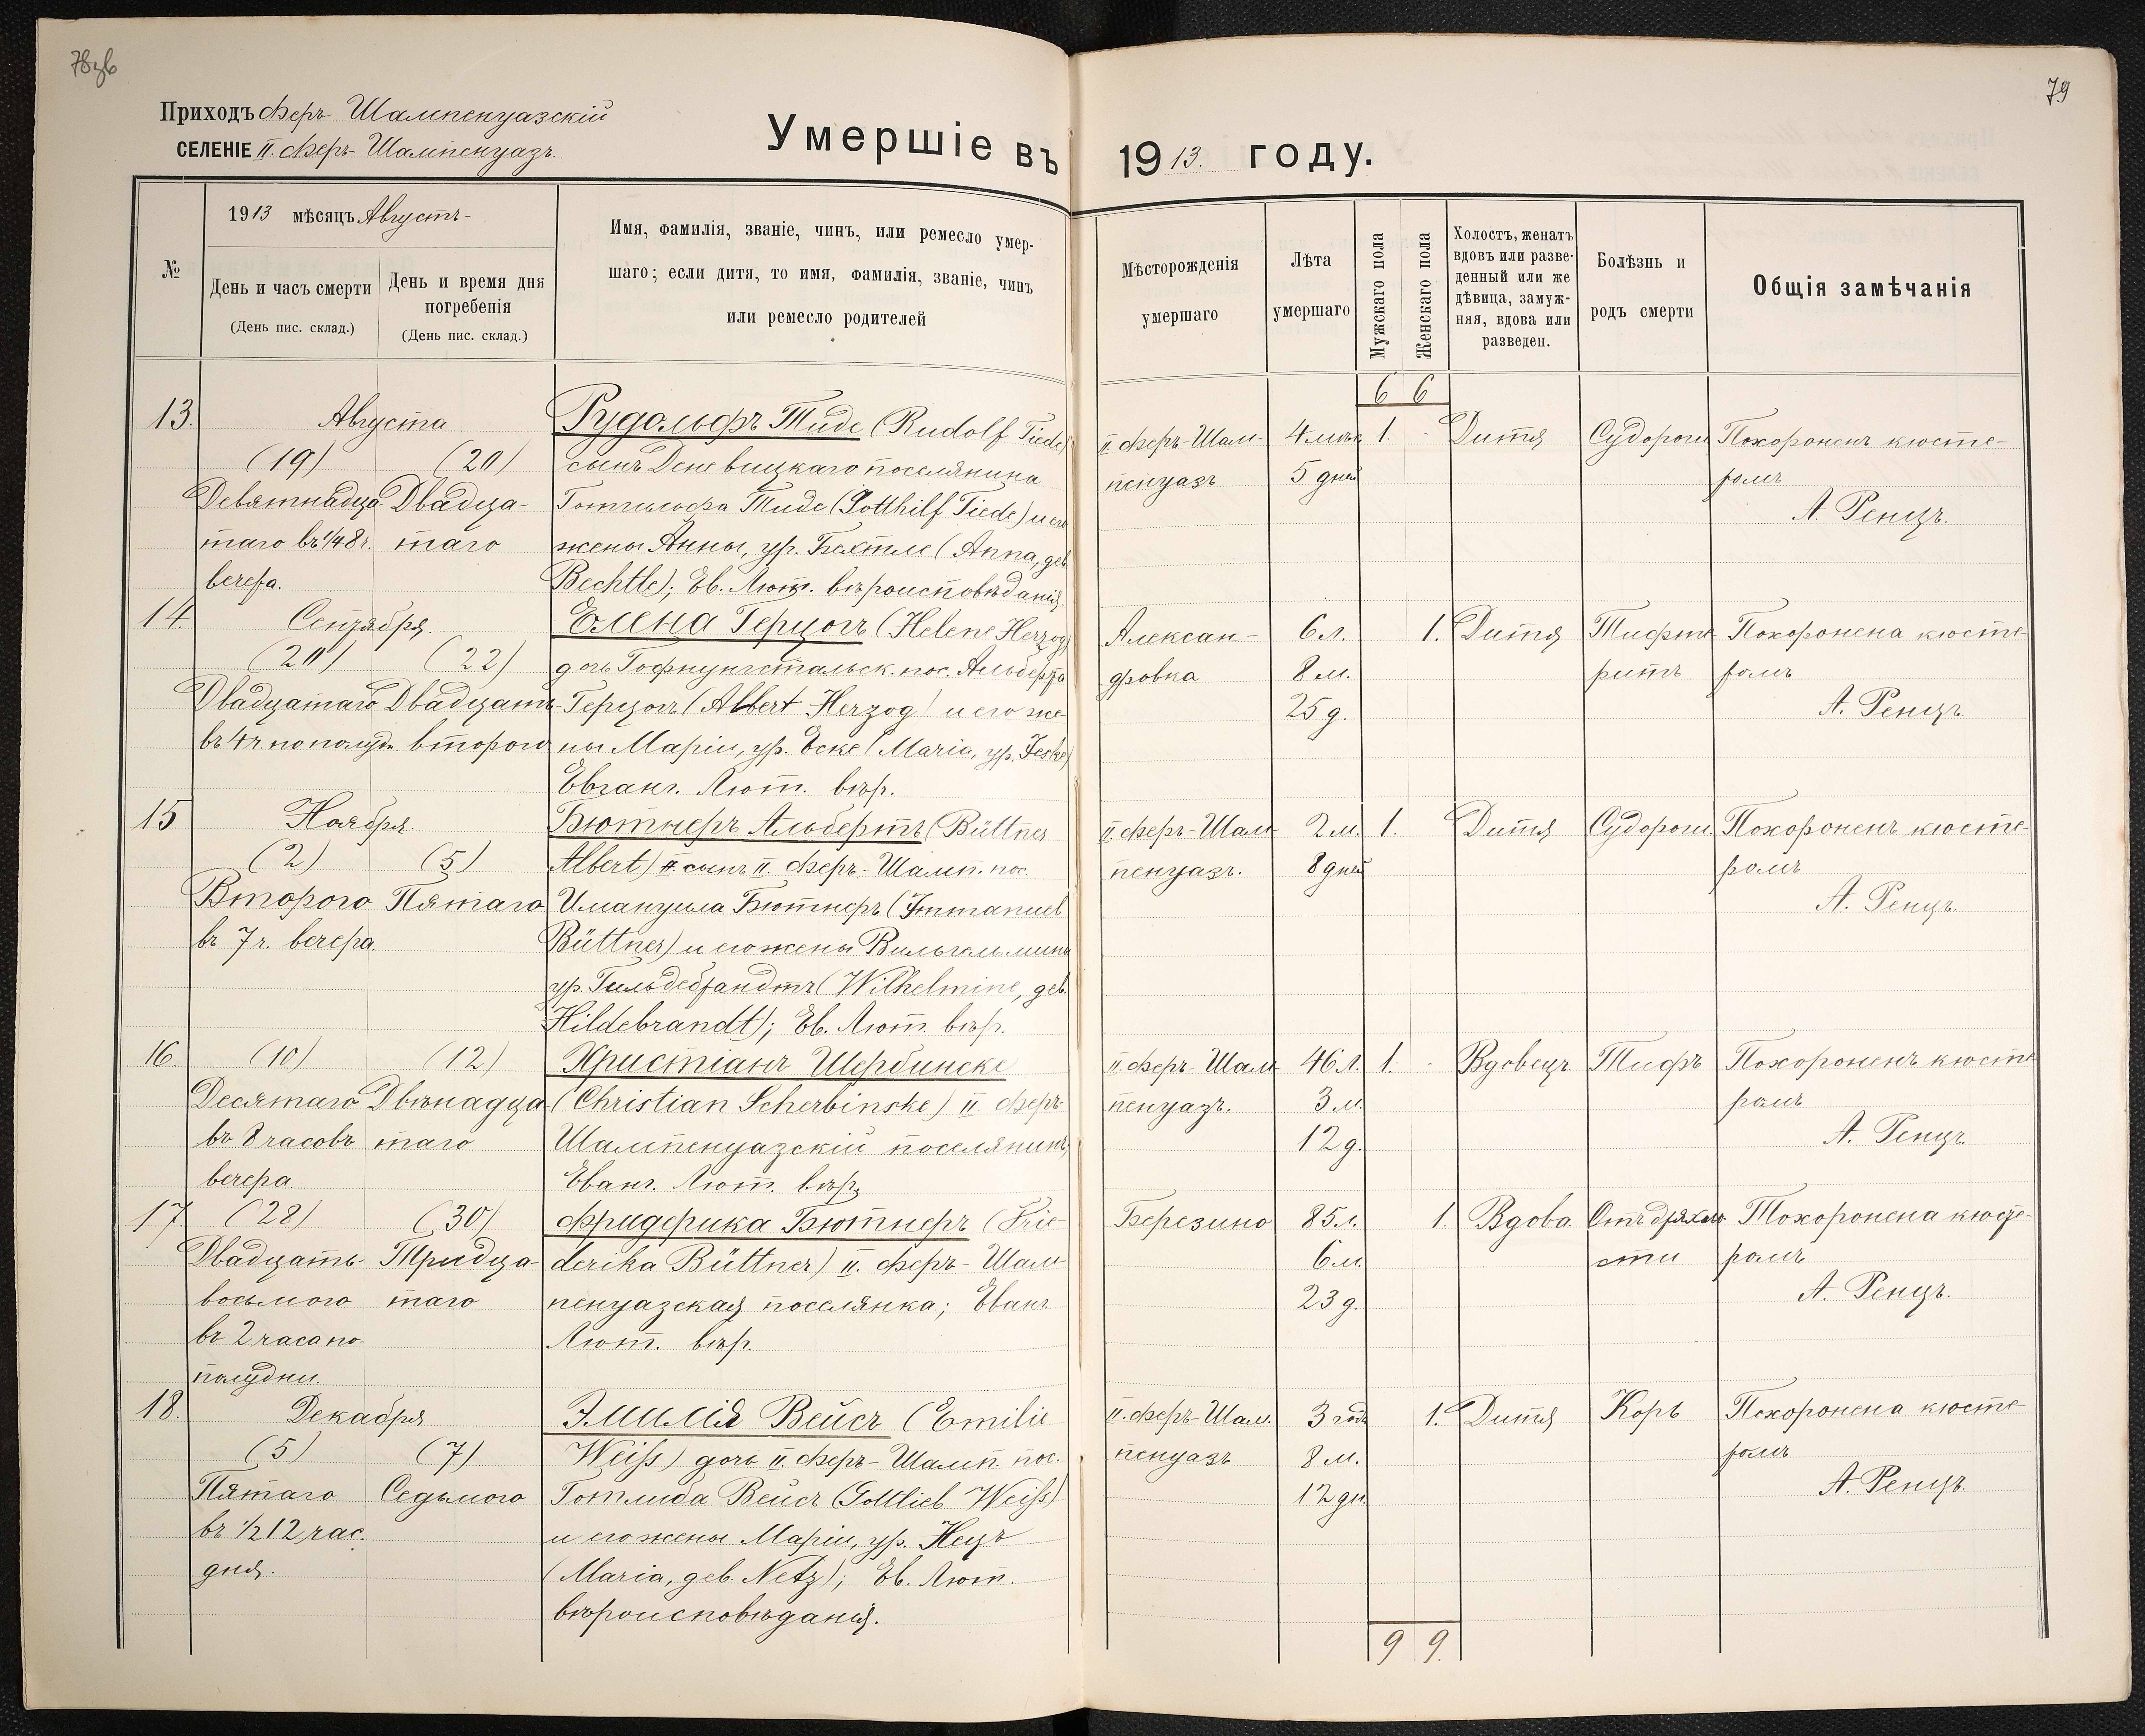 78об
79
Приходъ Феръ-Шампенуазскій
СЕЛЕНІЕ II. Феръ-Шампенуазъ.
Умершіе въ 1913. году.
№
1913 мѣсяцъ Августъ-
День и часъ смерти
(День пис. склад.)
День и время дня
погребенія
(День пис. склад.)
Имя, фамилія, званіе, чинъ, или ремесло умер-
шаго; если дитя, то имя, фамилія, званіе, чинъ
или ремесло родителей
Мѣсторожденія
умершаго
Лѣта
умершаго
Мужскаго пола
Женскаго пола
Холостъ, женатъ
вдовъ или разве-
денный или же
дѣвица, замуж-
няя, вдова или
разведен.
Болѣзнь и
родъ смерти
Общія замѣчанія
6 6
13.
Августа
(19) (20)
Девятнадца- Двадца-
таго въ 1/4 8 ч. таго
вечера.
Рудольфъ Тиде (Rudolf Tiede)
сынъ Деневицкаго поселянина
Готгильфа Тиде (Gotthilf Tiede) и его
жены Анны, ур. Бехтле (Anna, geb.
Bechtle); Ев. Лют. вѣроисповѣданія.
II. Феръ-Шам-
пенуазъ
4 мѣс.
5 дней
1. -
Дитя
Судороги
Похороненъ кюсте-
ромъ
А. Ренцъ.
14.
Сентября.
(20) (22)
Двадцатаго Двадцать-
въ 4 ч. пополудн. второго
Елена Герцогъ (Helene Herzog)
дочь Гофнунгстальск. пос. Альберта
Герцогъ (Albert Herzog) и его же-
ны Маріи, ур. Еске (Maria, ур. Jeske)
Еванг. Лют. вѣр.
Алексан-
дровка
6 л.
8 м.
25 д.
1.
Дитя
Дифте-
ритъ
Похоронена кюсте-
ромъ
А. Ренцъ.
15
Ноября.
(2) (5)
Второго Пятаго
въ 7 ч. вечера.
Бютнеръ Альбертъ (Büttner
Albert) сынъ II. Феръ-Шамп. пос.
Имануила Бютнеръ (Immanuel
Büttner) и его жены Вильгельмины
ур. Гильдебрандтъ (Wilhelmine, geb.
Hildebrandt); Ев. Лют. вѣр.
II. Феръ-Шам-
пенуазъ.
2 м.
8 дней
1.
Дитя
Судороги.
Похороненъ кюсте-
ромъ
А. Ренцъ.
16.
(10) (12)
Десятаго Двѣнадца-
въ 8 часовъ таго
вечера
Христіанъ Шербинске
(Christian Scherbinske) II Феръ-
Шампенуазскій поселянинъ,
Еванг. Лют. вѣр.
II. Феръ-Шам-
пенуазъ.
46 л.
3 м.
12 д.
1. -
Вдовецъ
Тифъ
Похороненъ кюсте-
ромъ
А. Ренцъ.
17
(28) (30)
Двадцать- Тридца-
восьмого таго
въ 2 часа по-
полудни.
Фридерика Бютнеръ (Frie-
derika Büttner) II. Феръ-Шам-
пенуазская поселянка; Еванг.
Лют. вѣр.
Березино
85 л.
6 м.
23 д.
1.
Вдова.
Отъ дряхло-
сти
Похоронена кюсте-
ромъ
А. Ренцъ.
18.
Декабря
(5) (7)
Пятаго Седьмого
въ 1/2 12 час.
дня.
Эмилія Вейсъ (Emilie
Weiß) дочь II. Феръ-Шамп. пос.
Готлиба Вейсъ (Gottlieb Weiß)
и его жены Маріи, ур. Нецъ
(Maria, geb. Netz); Ев. Лют.
вѣроисповѣданія.
II. Феръ-Шам.
пенуазъ
3 года
8 м.
12 дн.
1.
Дитя
Корь
Похоронена кюсте-
ромъ
А. Ренцъ.
9 9.